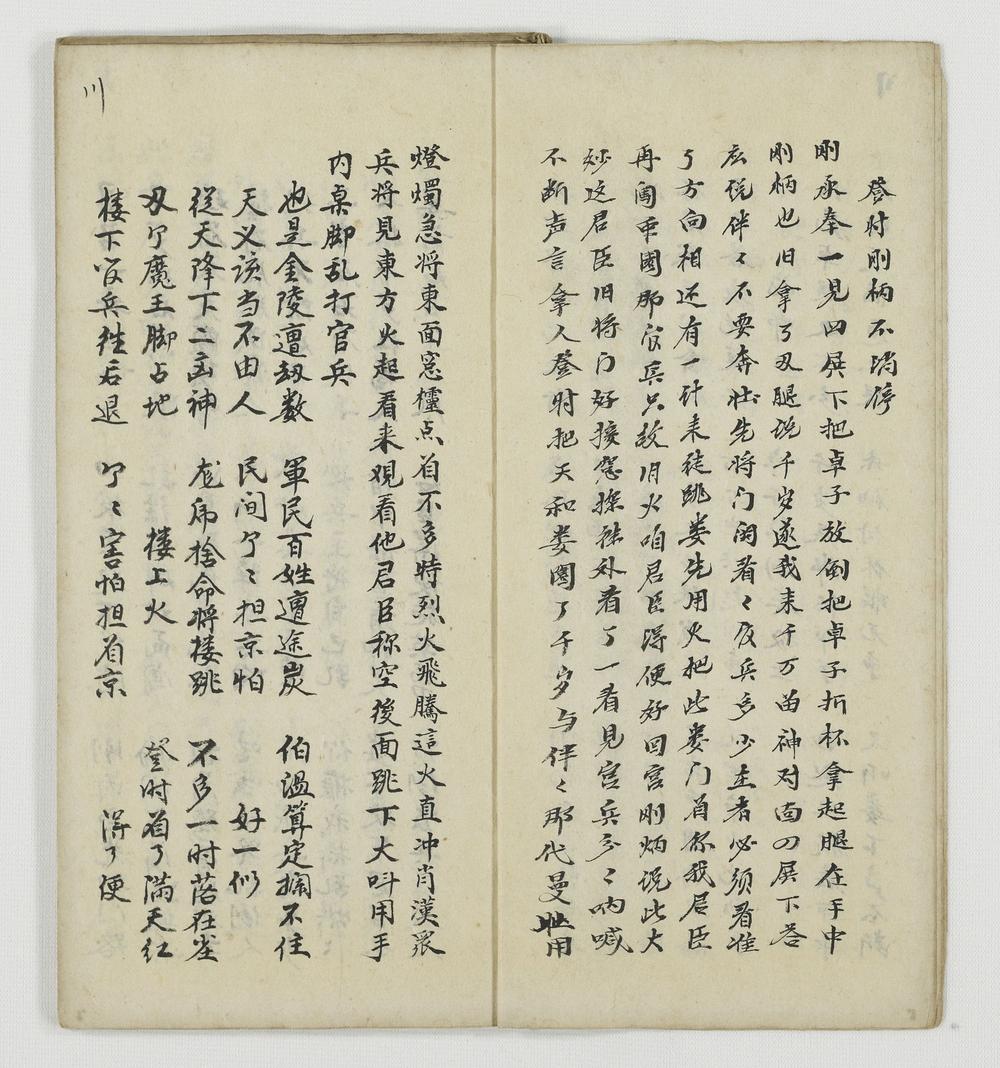 登时刚柄不消停
刚承奉一見四屏下把卓子放倒把卓子折杯拿起腿在手中
刚柄也旧拿了双腿说千岁遂我来千万苗神对面四屏下答
应说伴々不要奔壮先将门闭看々反兵多少主者必须看准
了方向相还有一计来徒跳娄先用火把此娄门首你我君臣
再闯重圍那官兵只救泪火咱君臣得便好回宫刚炳说此大
妙这君臣旧将门好接窓探牀外看了一看見宫兵多々吶喊
不断声言拿人登时把天和娄圍了千岁与伴々那代曼忙用
燈燭急将東面窓欞点着不多時烈火飛騰這火直冲肖漢衆
兵将見東方火起看来观看他君臣称空後面跳下大呌用手
内桌脚乱打官兵
也是金陵遭劫数 軍民百姓遭途炭 伯温算定擱不住
天义该当不由人 民间个々担京怕 好一似
從天降下二凶神 龙虎捨命将楼跳 不多一时落在尘
双个魔王脚占地 楼上火 登时着了满天红
楼下官兵往后退 个々害怕担着京 得了便
川